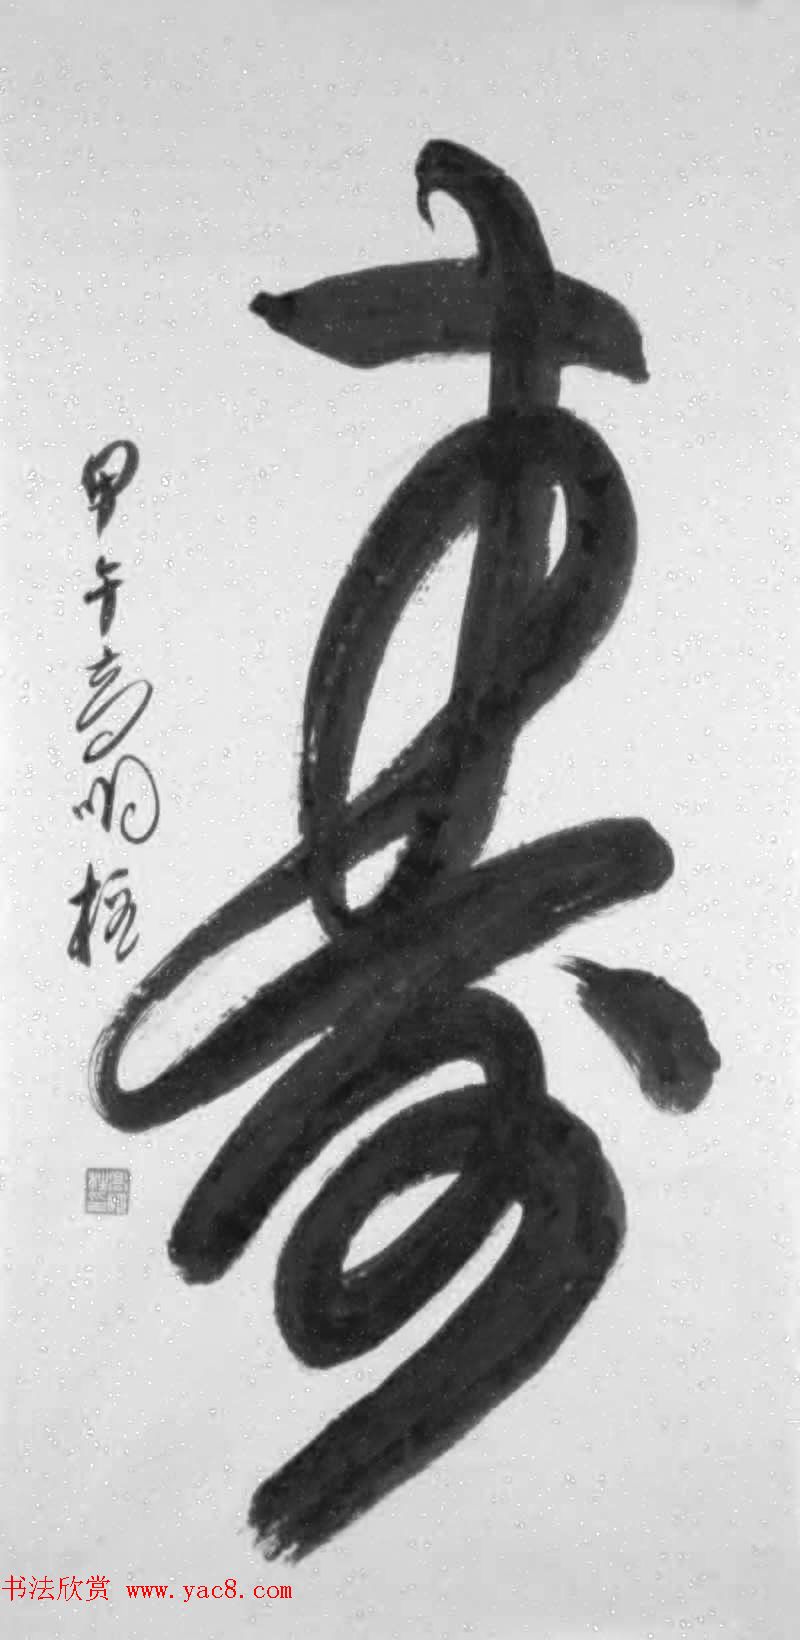 寿
甲午高明柱
书法欣赏 www.yac8.com